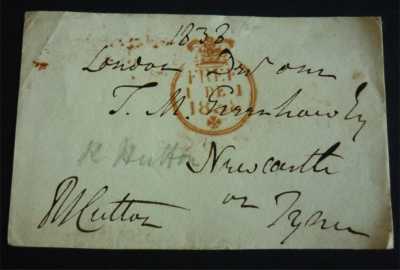 1838
London Decr one
FREE
1 DE 1
1838
T. M. Greenhow Esq
R Hutton
Newcastle
RHutton
on Tyne